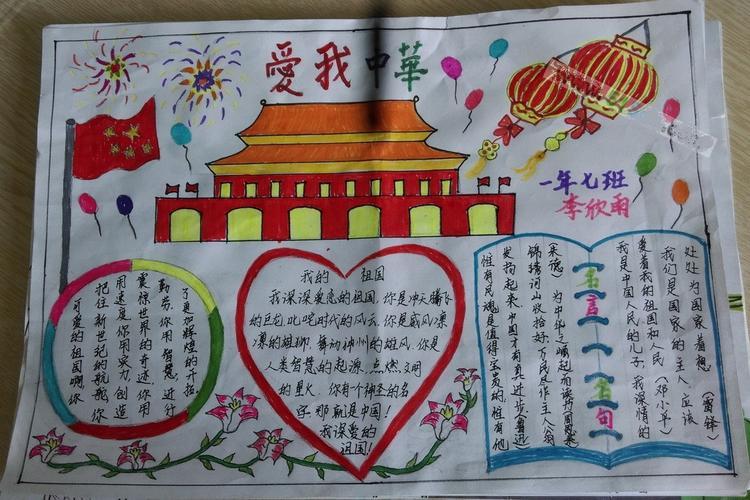 愛我中華
一年七班
李欣雨
可爱的祖国啊,你
把住新世纪的航舵,你
用速度,你用实力,创造
震惊世界的奇迹,你用
勤劳,你用智慧,进行
了更加辉煌的开拓
我的 祖国
我深深爱恋的祖国.你是冲天腾飞
的巨龙,叱咤时代的风云,你是威风凛
凛的雄狮,舞动神州的雄风,你是
人类智慧的起源,点燃文明
的星火.你有一个神圣的名
字,那就是中国!
我深爱的
祖国!
惟有民魂是值得宝贵的 惟有他
发扬起来,中国才有真进步(鲁迅)
锦绣河山收拾好,万民尽作主人翁
(朱德) 为中华之崛起而读书(周恩来)
名言名句
我是中国人民的儿子,我深情的
爱着我的祖国和人民 (邓小平)
我们是国家的主人 应该
处处为国家着想 (雷锋)